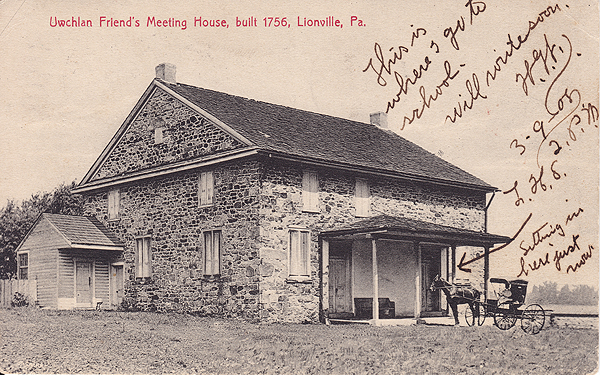 Uwchlan Friend's Meeting House, built 1756, Lionville, Pa.
This is
where I go to
school.
will write soon.
3-9-08
2. P.M
L. H. S.
Sitting in
here just
now